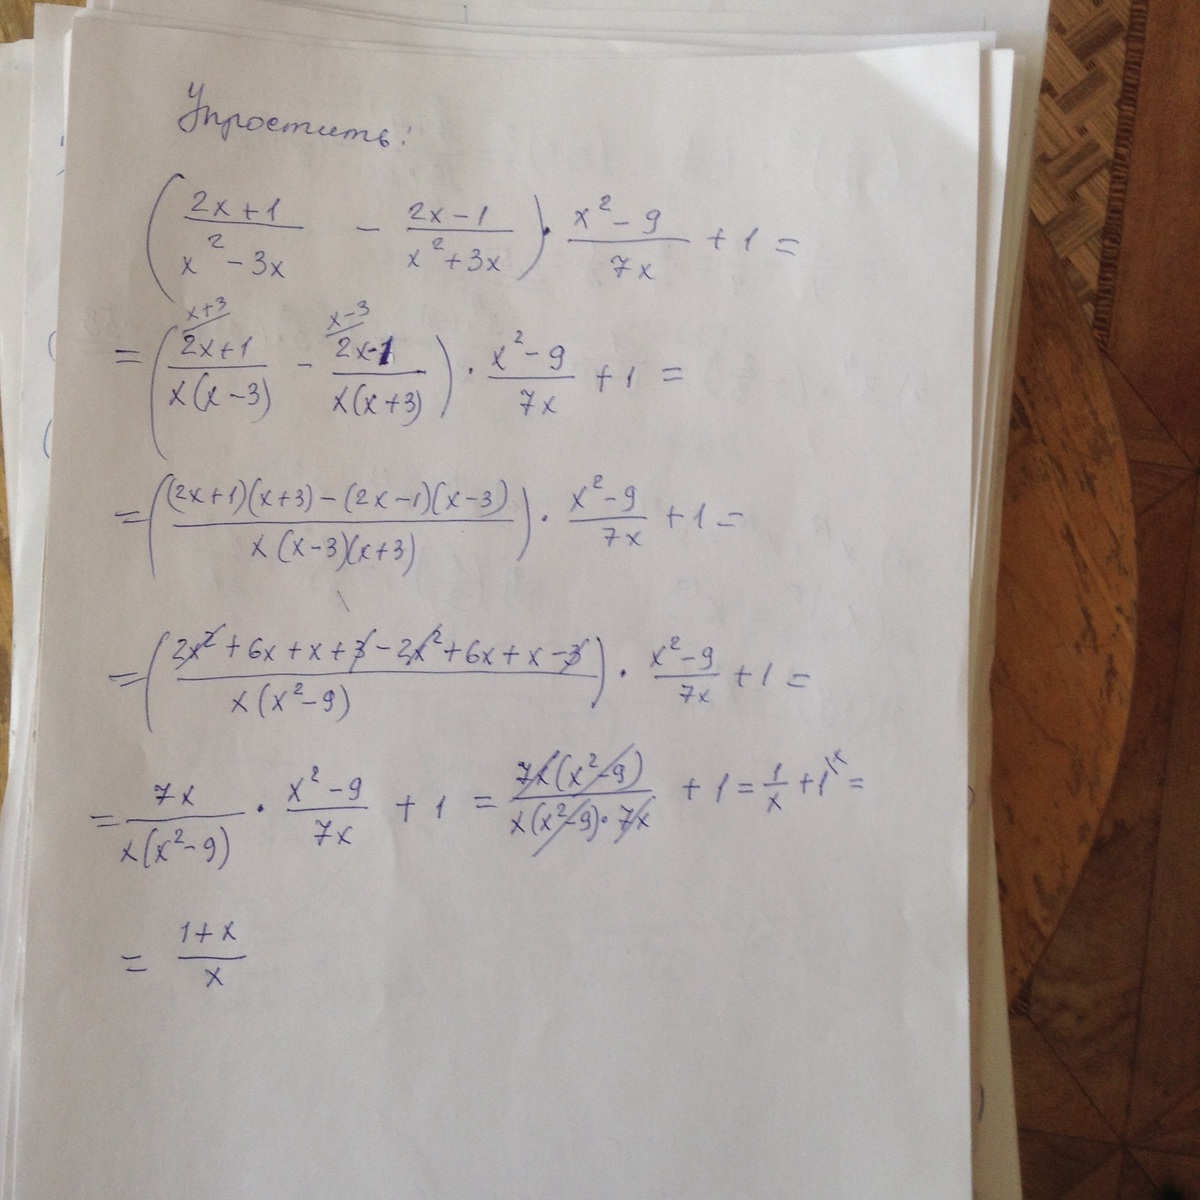 Упростить:
(2x+1)/(x²-3x) - (2x-1)/(x²+3x)) · (x²-9)/(7x) + 1 =
x+3 x-3
= ((2x+1)/(x(x-3)) - (2x-1)/(x(x+3))) · (x²-9)/(7x) + 1 =
= (((2x+1)(x+3)-(2x-1)(x-3))/(x(x-3)(x+3))) · (x²-9)/(7x) + 1 =
= ((2x²+6x+x+3-2x²+6x+x-3)/(x(x²-9))) · (x²-9)/(7x) + 1 =
= 7x/(x(x²-9)) · (x²-9)/(7x) + 1 = (7x(x²-9))/(x(x²-9)·7x) + 1 = 1/x + 1\x =
= (1+x)/x